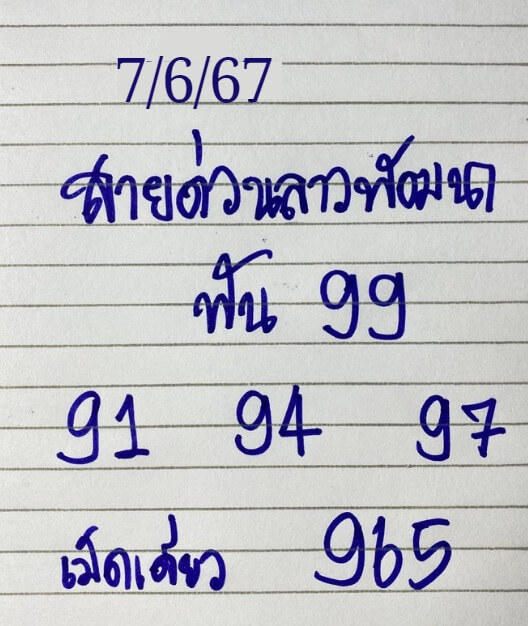 7/6/67
สายด่วนลาวพัฒนา
ฟัน 99
91 94 97
เม็ดเดียว 965